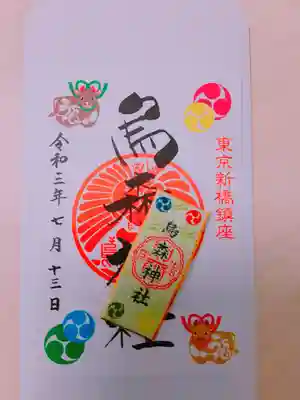 東京新橋鎮座
烏森神社
令和三年七月十三日
烏森神社